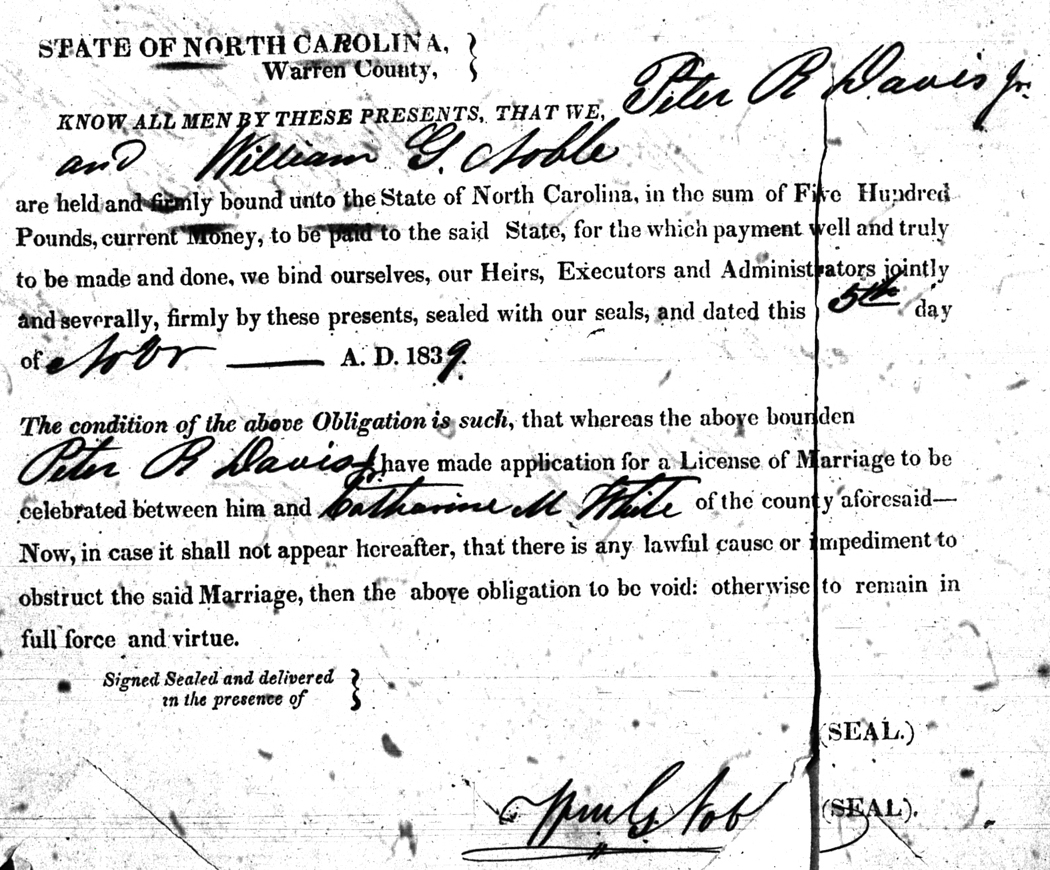 STATE OF NORTH CAROLINA,
Warren County,
KNOW ALL MEN BY THESE PRESENTS, THAT WE, Peter R Davis Jr.
and William G. Noble
are held and firmly bound unto the State of North Carolina, in the sum of Five Hundred
Pounds, current Money, to be paid to the said State, for the which payment well and truly
to be made and done, we bind ourselves, our Heirs, Executors and Administrators jointly
and severally, firmly by these presents, sealed with our seals, and dated this 5th day
of Novr A. D. 1839.
The condition of the above Obligation is such, that whereas the above bounden
Peter R Davis Jr have made application for a License of Marriage to be
celebrated between him and Catharine M White of the county aforesaid—
Now, in case it shall not appear hereafter, that there is any lawful cause or impediment to
obstruct the said Marriage, then the above obligation to be void: otherwise to remain in
full force and virtue.
Signed Sealed and delivered
in the presence of
(SEAL.)
Wm G Nob (SEAL).